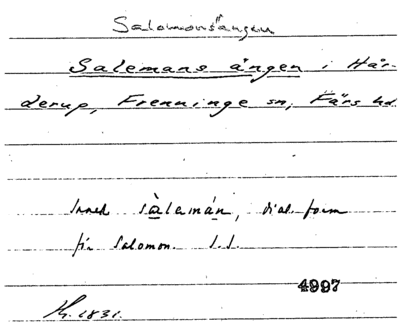 Salomonsängen
Salemans ängen i Här-
derup, Frenninge sn, Färs hd
Inneh sàlemán, dial. form
för Salomon. S.S.
4997
1831.